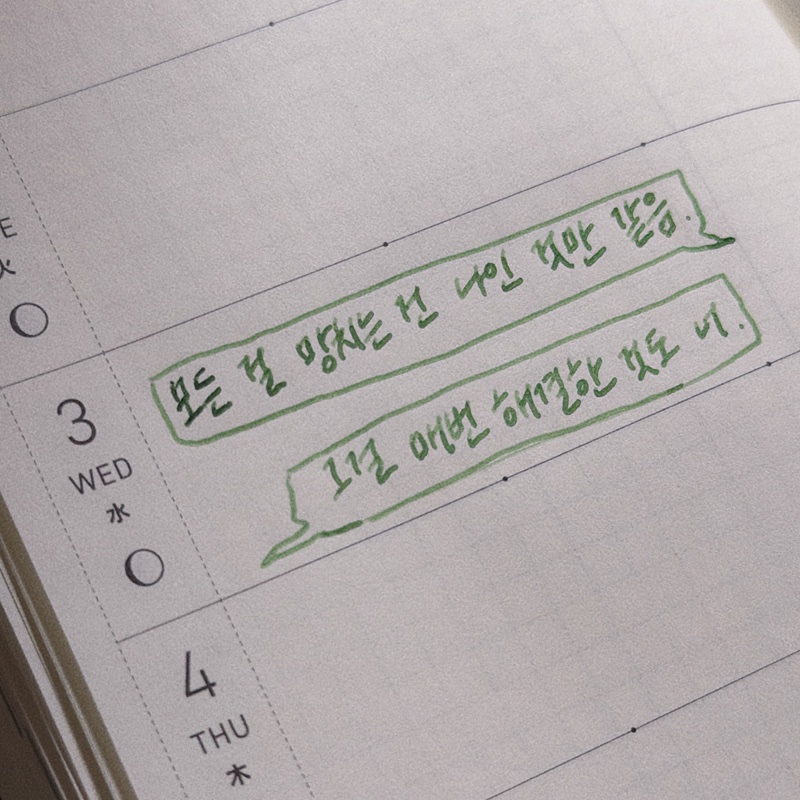 E
火
모든 걸 망치는 건 나인 것만 같음.
3
WED
水
그걸 매번 해결한 것도 너.
4
THU
木